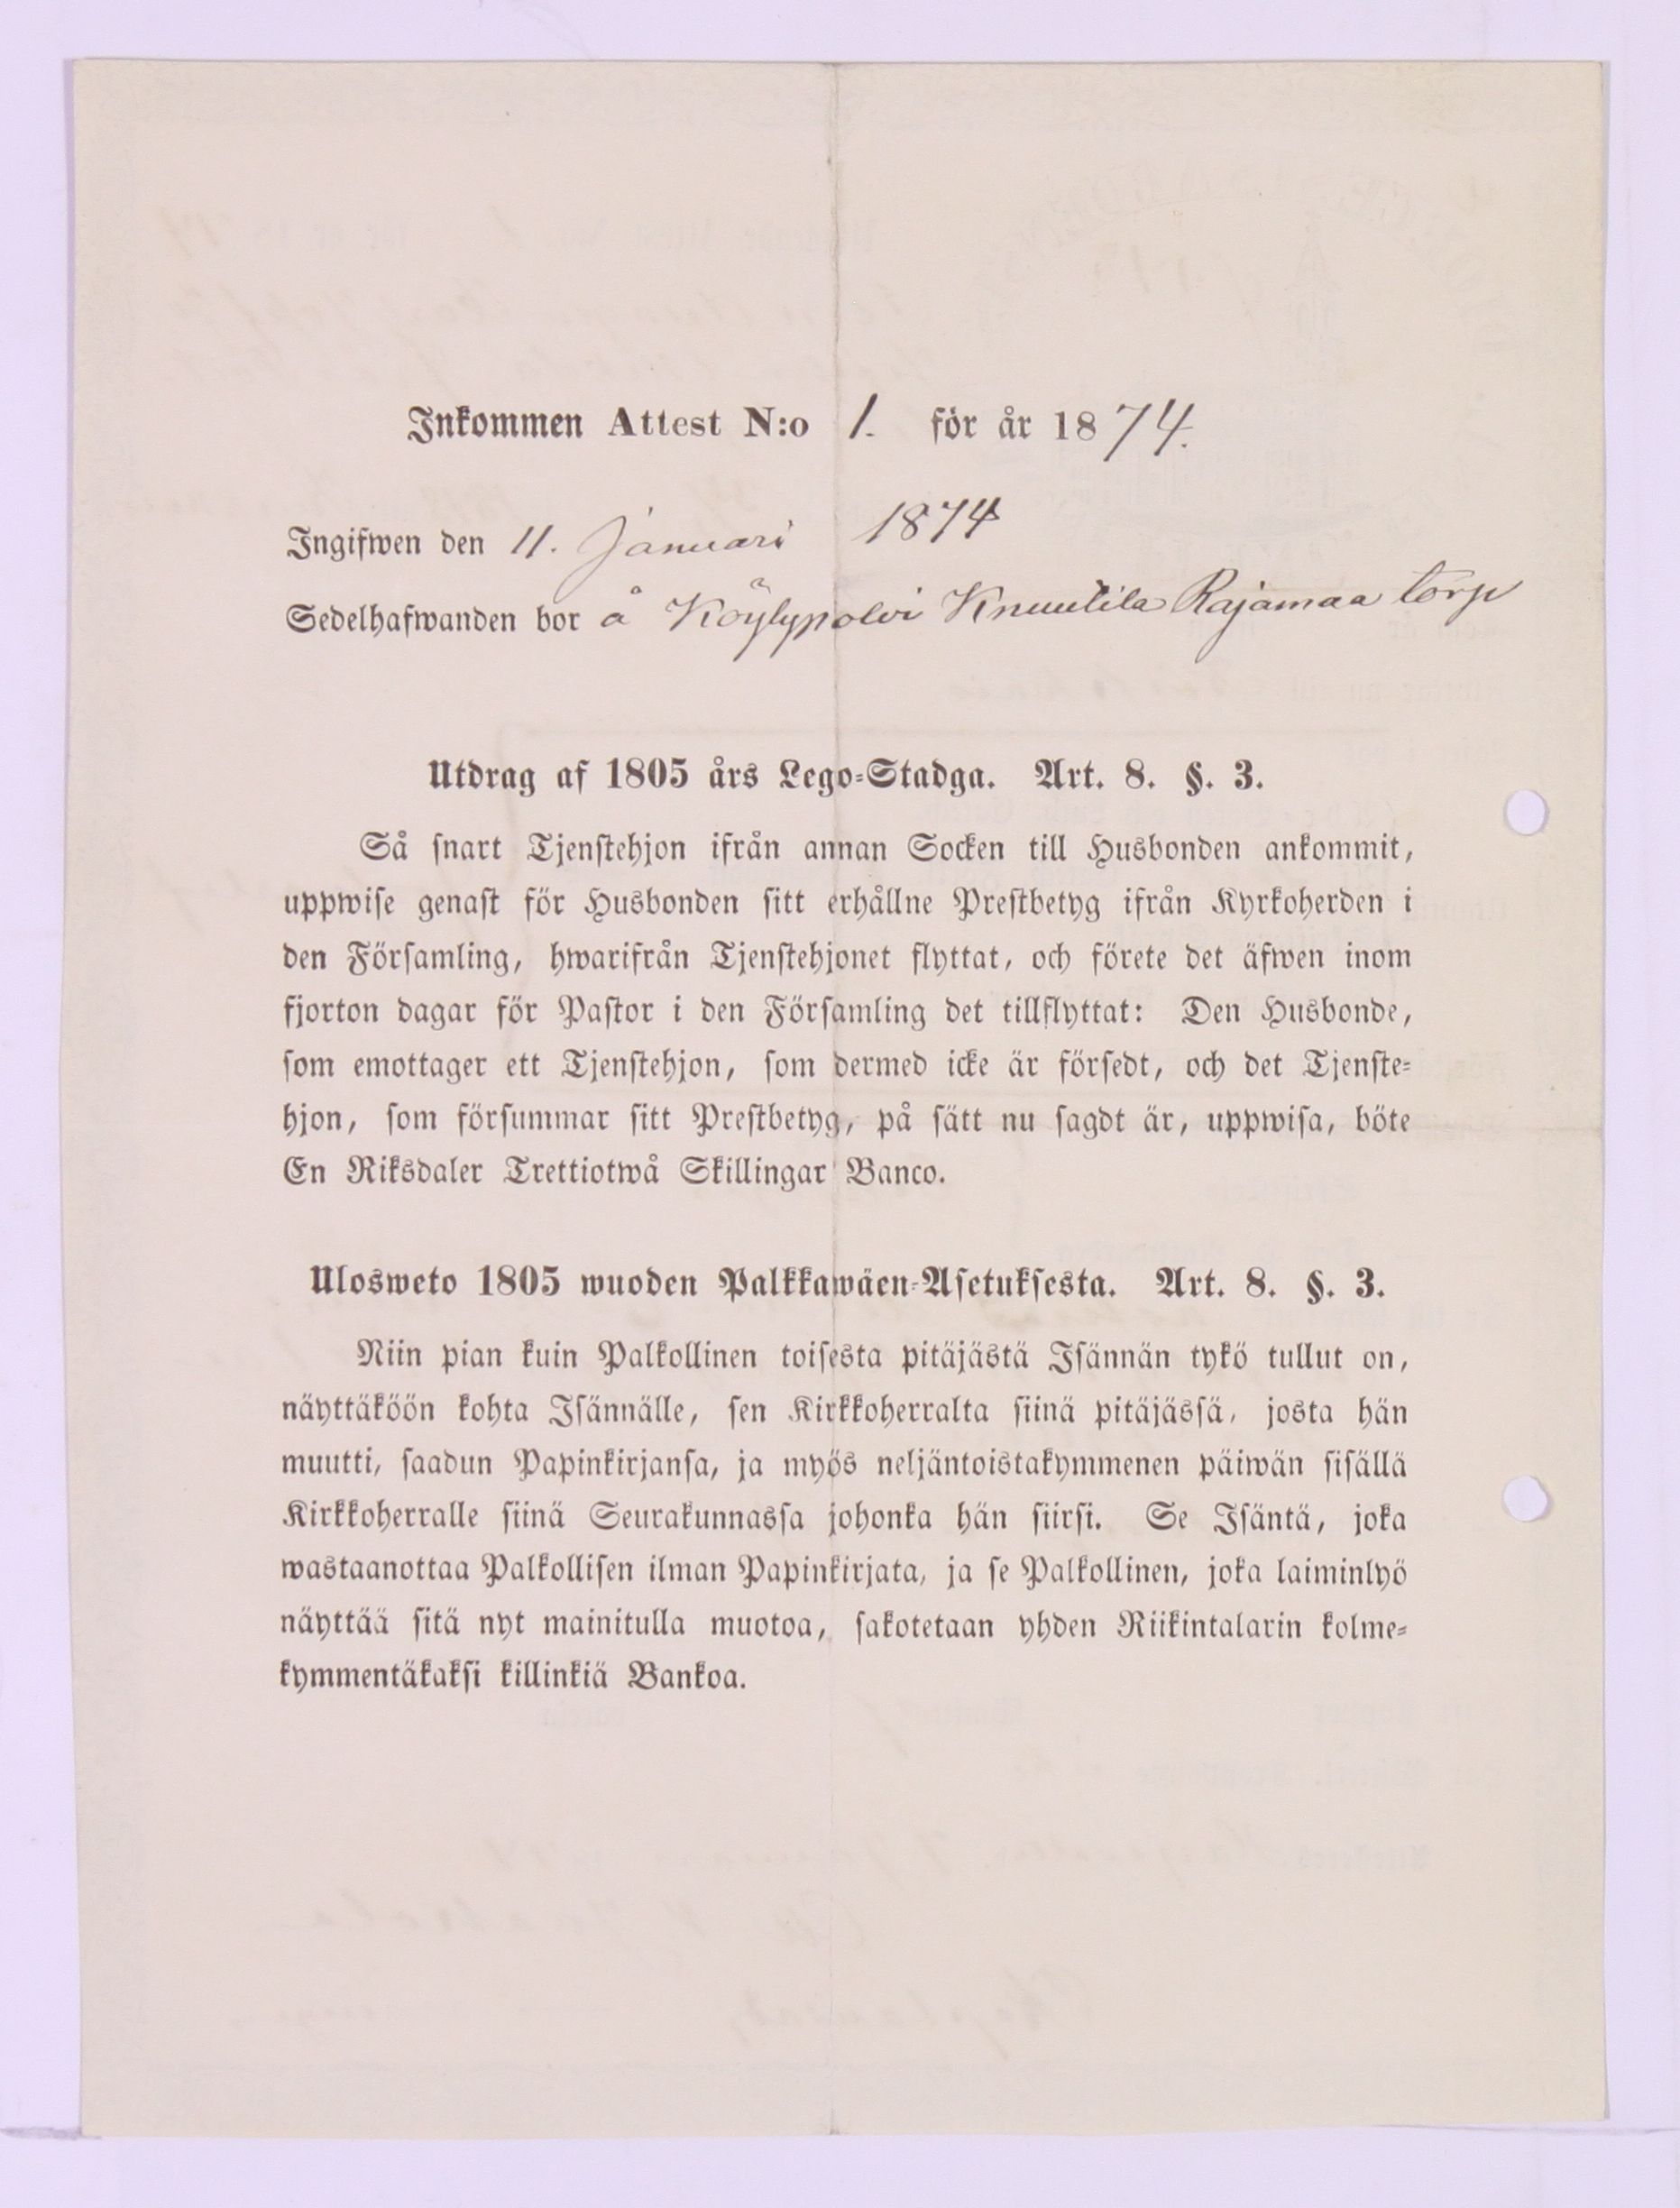 Inkommen Attest N:o 1. för år 1874.
Ingifwen den 11. Januari 1874
Sedelhafwanden bor å Köylypolvi Knuutila Rajamaa torp
Utdrag af 1805 års Lego-Stadga. Art. 8. §. 3.
Så snart Tjenstehjon ifrån annan Socken till Husbonden ankommit,
uppwise genast för Husbonden sitt erhållne Prestbetyg ifrån Kyrkoherden i
den Församling, hwarifrån Tjenstehjonet flyttat, och förete det äfwen inom
fjorton dagar för Pastor i den Församling det tillflyttat: Den Husbonde,
som emottager ett Tjenstehjon, som dermed icke är försedt, och det Tjenste-
hjon, som försummar sitt Prestbetyg, på sätt nu sagdt är, uppwisa, böte
En Riksdaler Trettiotwå Skillingar Banco.
Ulosweto 1805 wuoden Palkkawäen-Asetuksesta. Art. 8. §. 3.
Niin pian kuin Palkollinen toisesta pitäjästä Isännän tykö tullut on,
näyttäköön kohta Isännälle, sen Kirkkoherralta siinä pitäjässä, josta hän
muutti, saadun Papinkirjansa, ja myös neljäntoistakymmenen päiwän sisällä
Kirkkoherralle siinä Seurakunnassa johonka hän siirsi. Se Isäntä, joka
wastaanottaa Palkollisen ilman Papinkirjata, ja se Palkollinen, joka laiminlyö
näyttää sitä nyt mainitulla muotoa, sakotetaan yhden Riikintalarin kolme-
kymmentäkaksi killinkiä Bankoa.